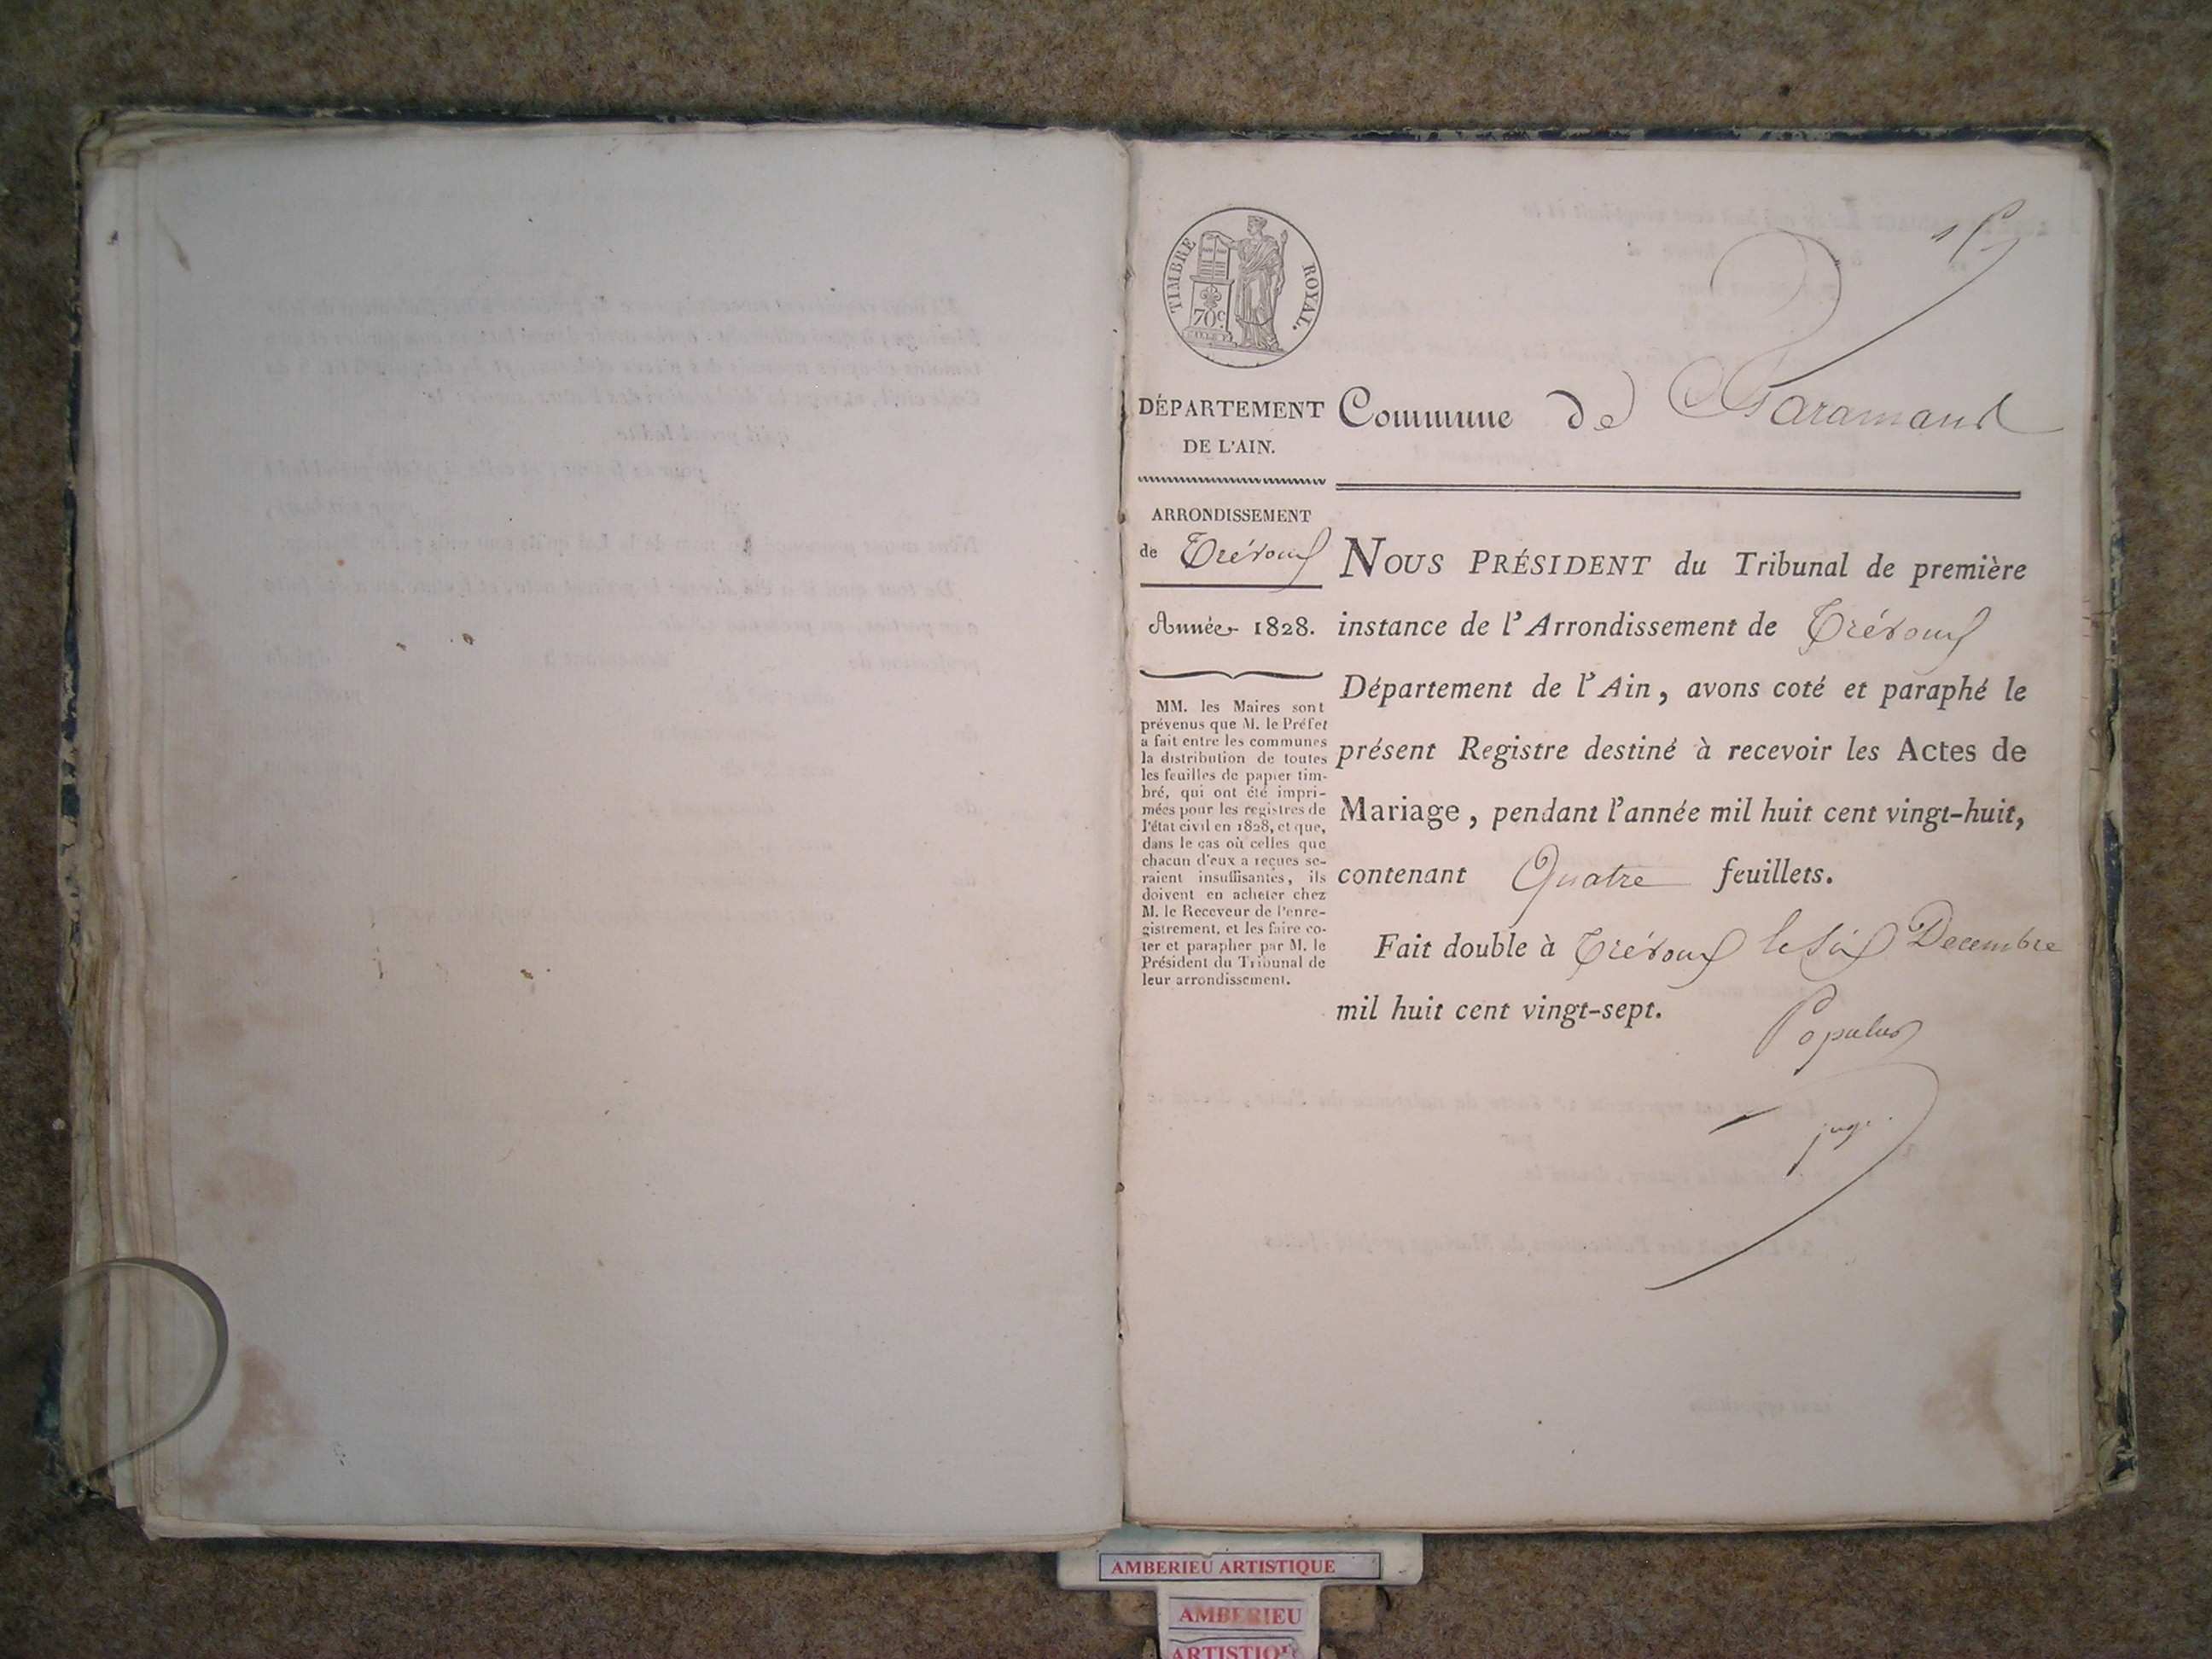 TIMBRE ROYAL.
70c
DÉPARTEMENT
DE L'AIN.
Commune de Baramans
ARRONDISSEMENT
de Trévoux
Année 1828.
MM. les Maires sont
prévenus que M. le Préfet
a fait entre les communes
la distribution de toutes
les feuilles de papier tim-
bré, qui ont été impri-
mées pour les registres de
l'état civil en 1828, et que,
dans le cas où celles que
chacun d'eux a reçues se-
raient insuffisantes, ils
doivent en acheter chez
M. le Receveur de l'enre-
gistrement, et les faire co-
ter et parapher par M. le
Président du Tribunal de
leur arrondissement.
NOUS PRÉSIDENT du Tribunal de première
instance de l'Arrondissement de Trévoux
Département de l'Ain, avons coté et paraphé le
présent Registre destiné à recevoir les Actes de
Mariage, pendant l'année mil huit cent vingt-huit,
contenant Quatre feuillets.
Fait double à Trévoux le six Decembre
mil huit cent vingt-sept.
Populus
juge
AMBERIEU ARTISTIQUE
AMBERIEU